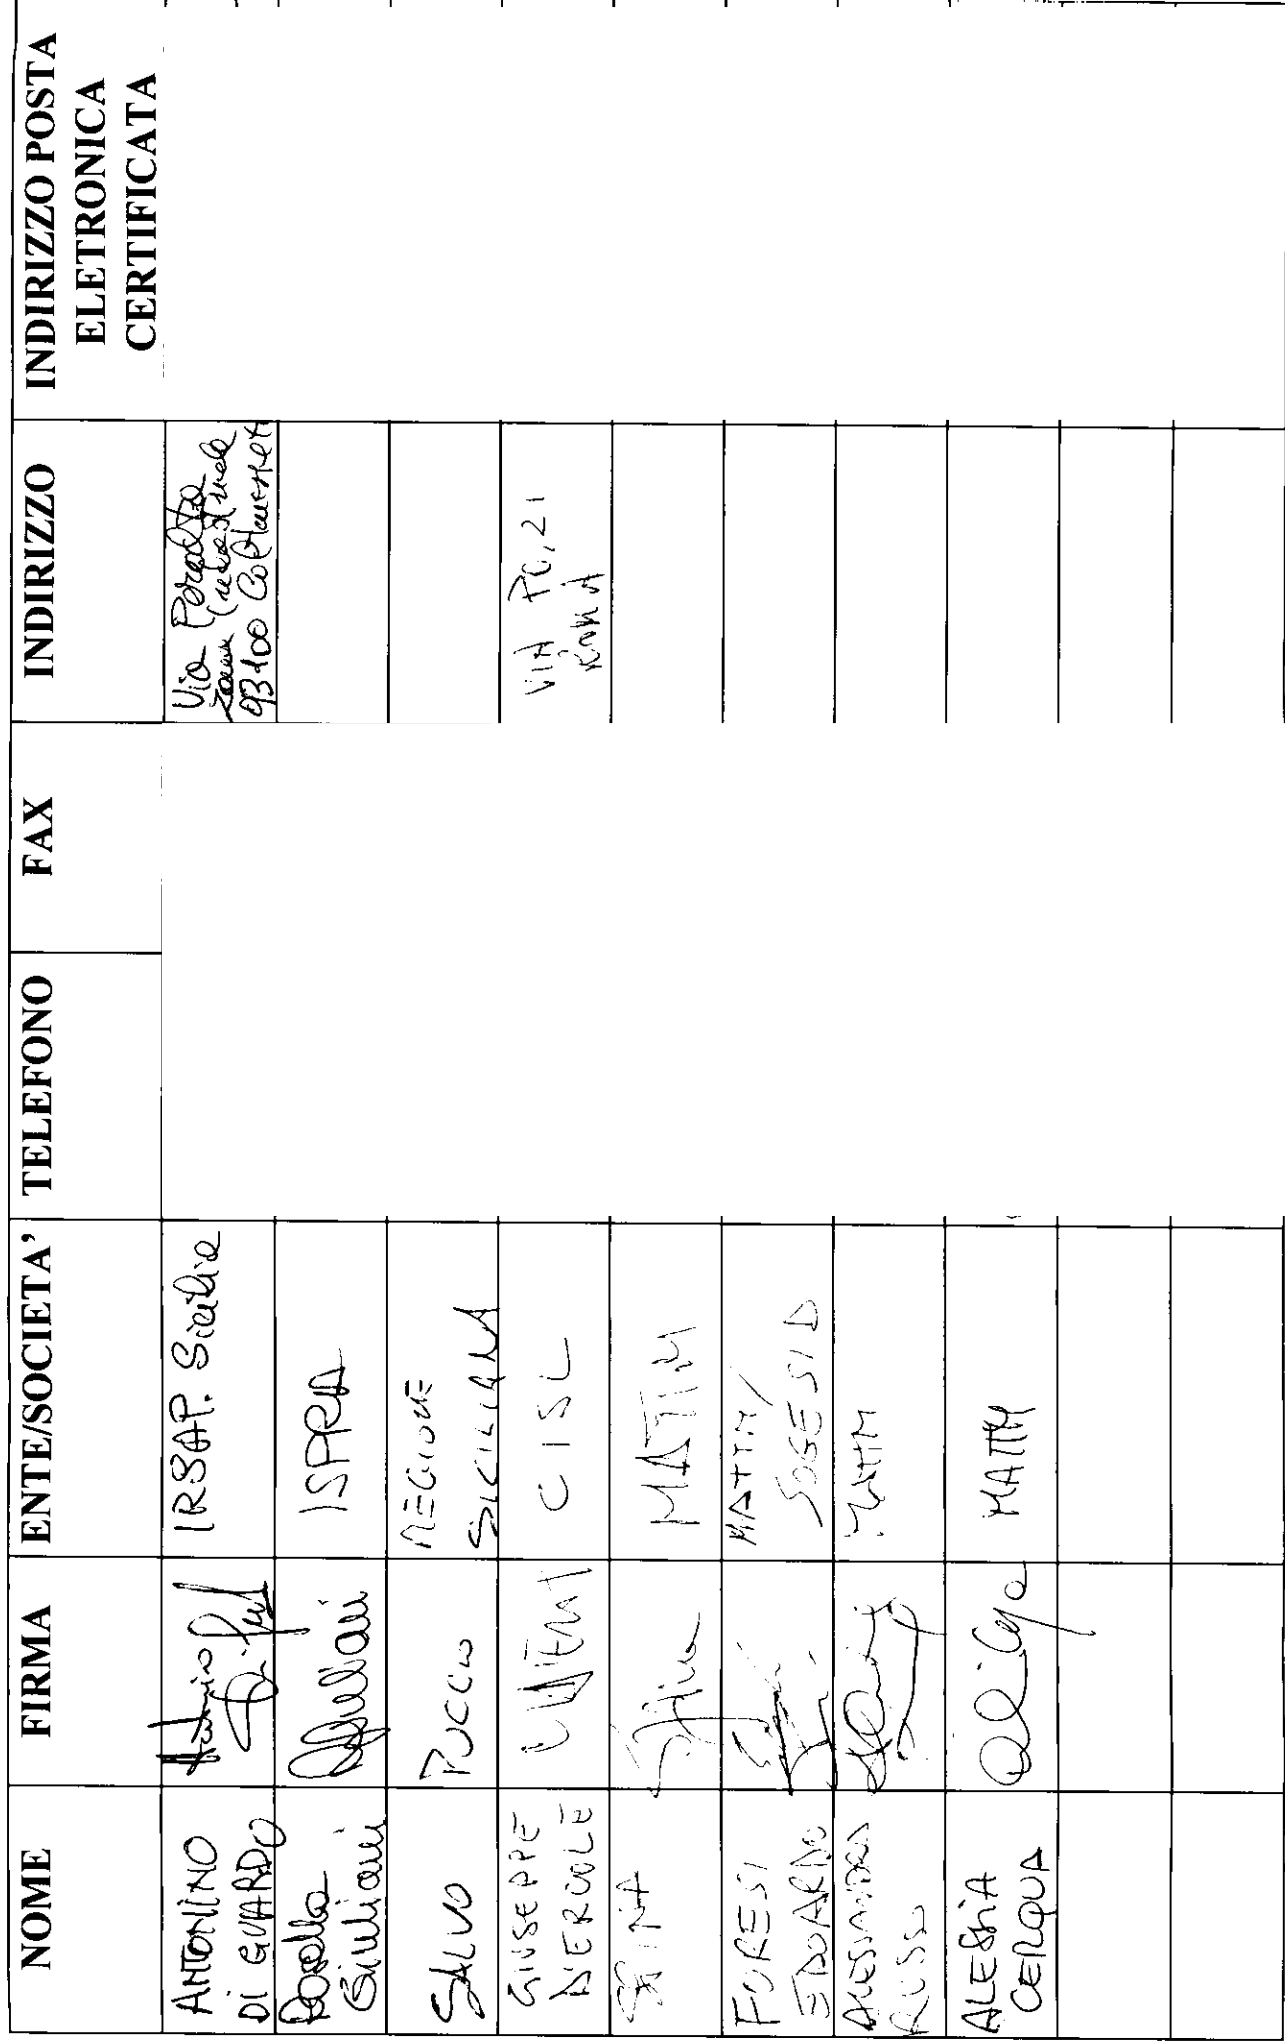 NOME FIRMA ENTE/SOCIETA' TELEFONO FAX INDIRIZZO INDIRIZZO POSTA
ELETRONICA
CERTIFICATA
ANTONINO
DI GUARDO
IRSAP. Sicilia
Via Peralta
93100
Giuliani
Giuliani
ISPRA
SALVO
PUCCIO
REGIONE
SICILIANA
GIUSEPPE
D'ERCOLE
CISL
VIA PO, 21
ROMA
MATTM
FORESI
EDOARDO
MATTM/
SOGESID
ALESSANDRA
RUSSO
MATTM
ALESSIA
CERQUA
MATTM